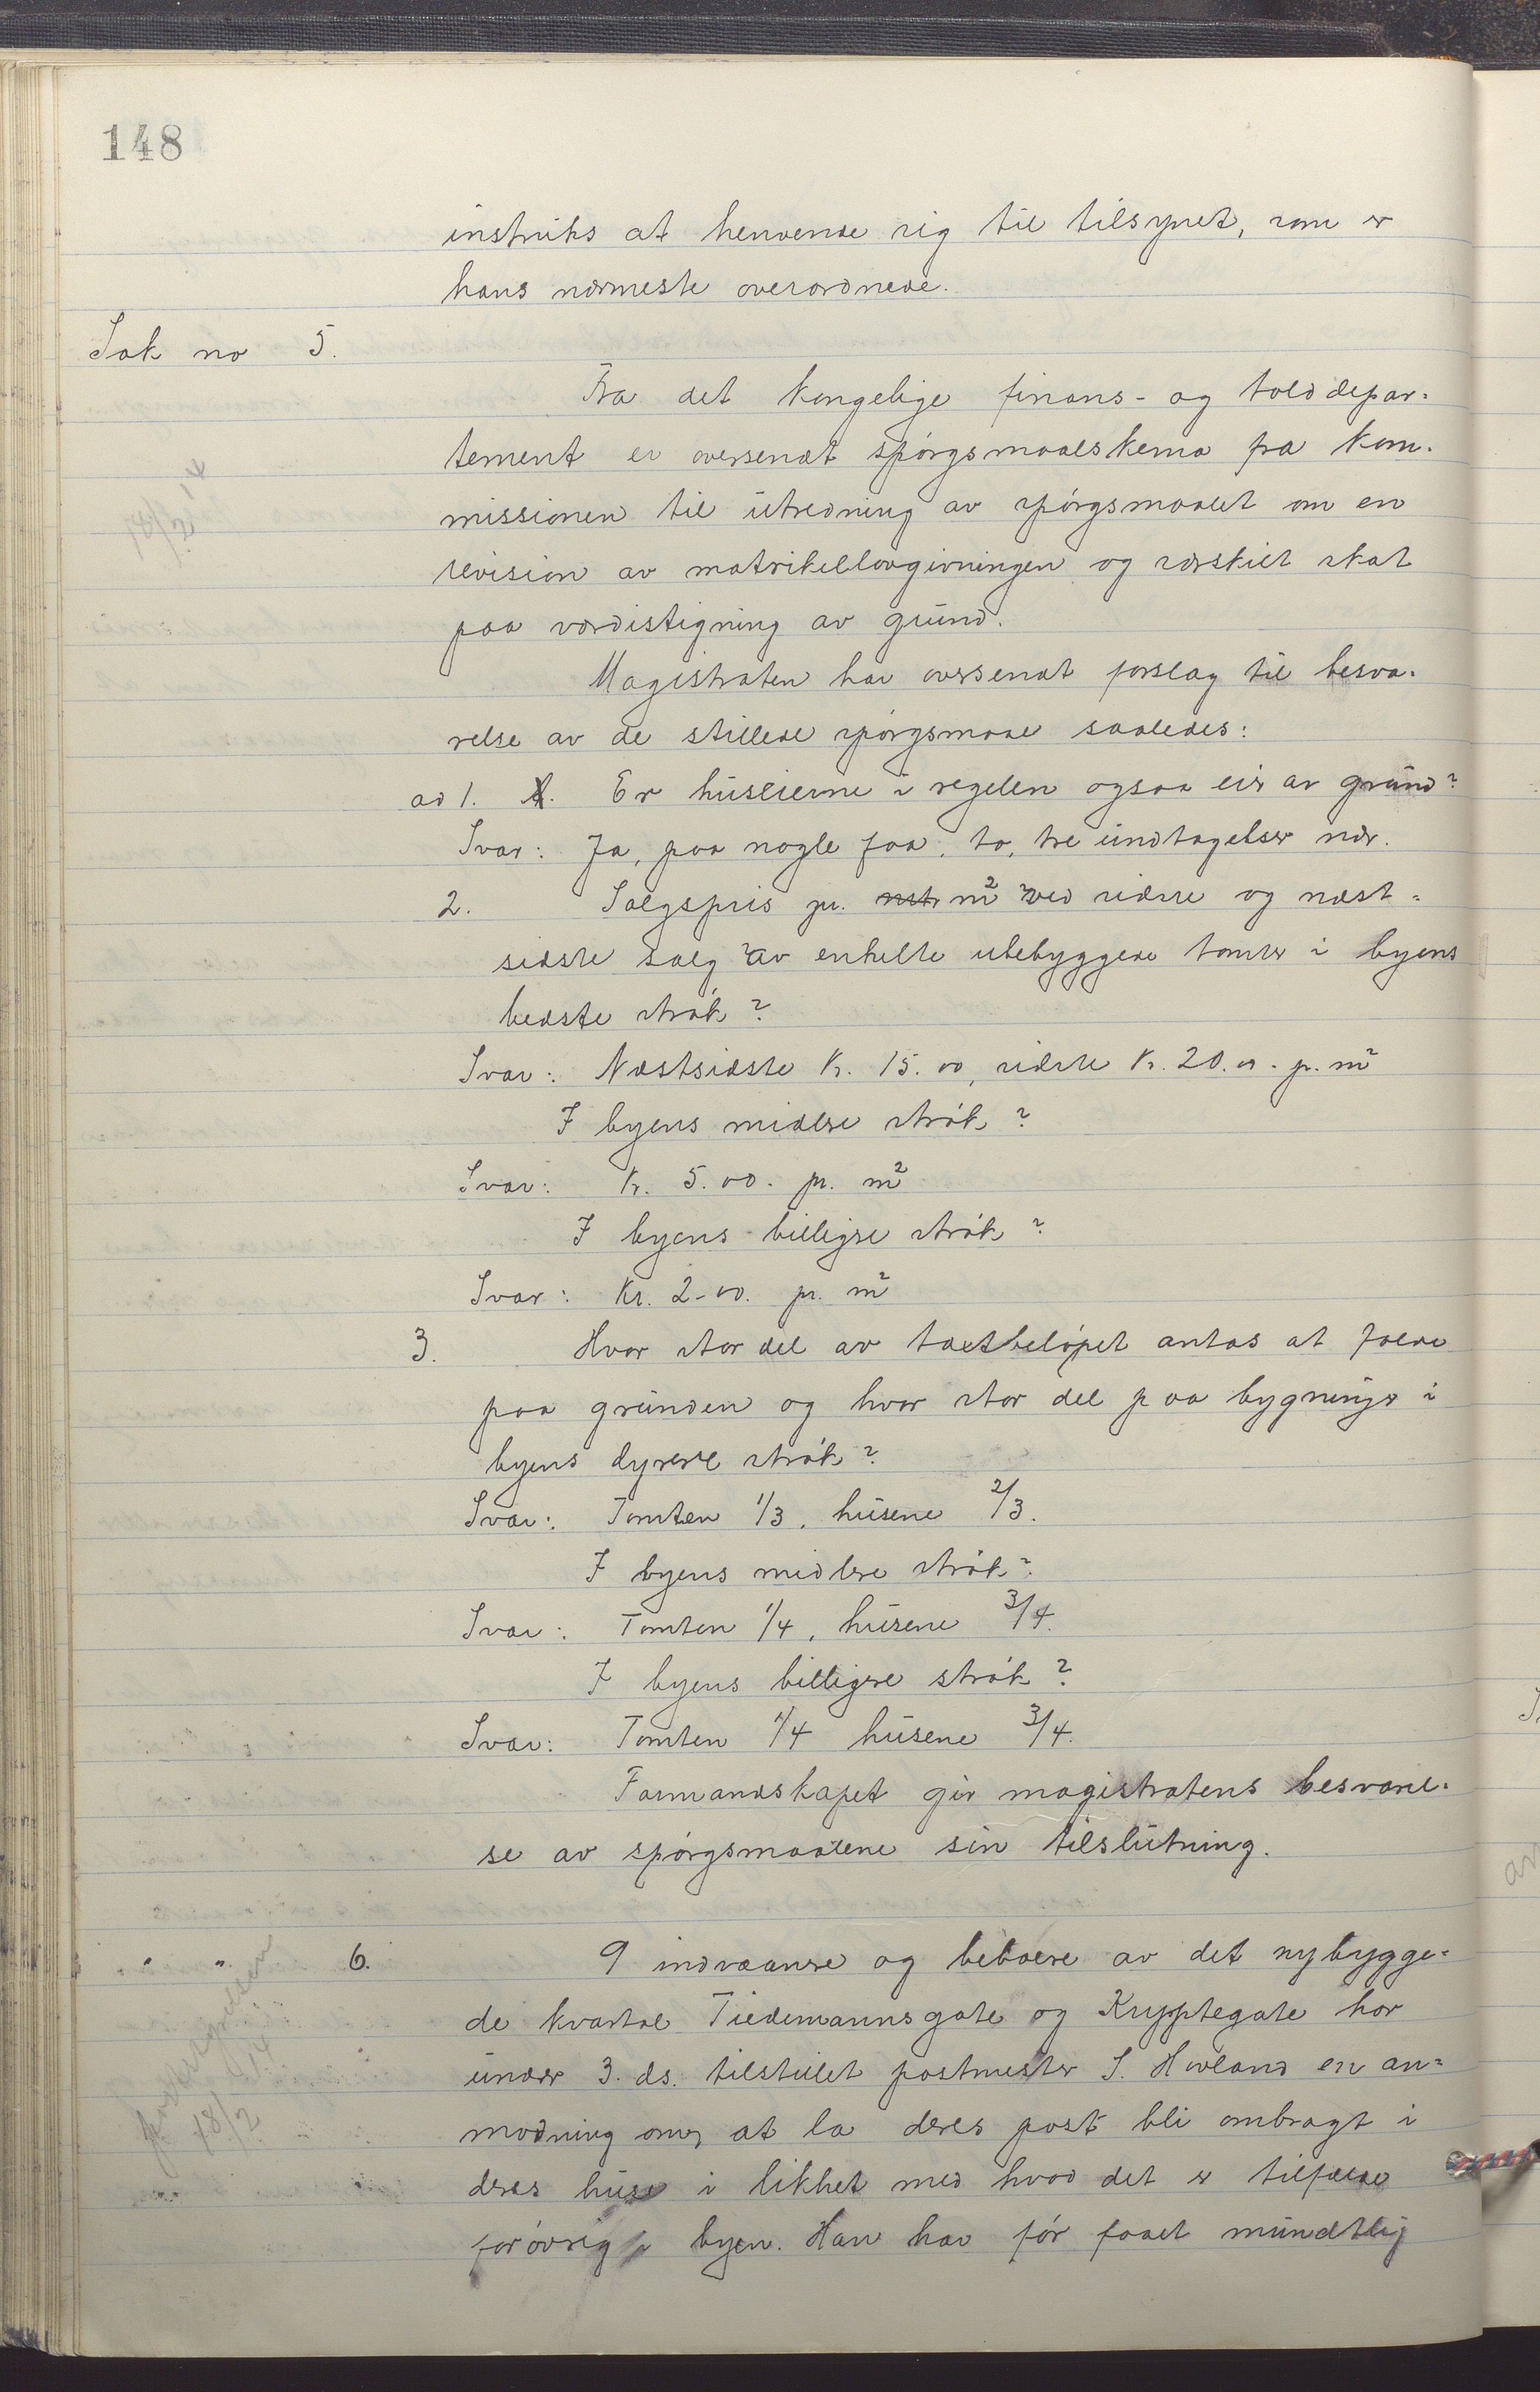 148
instruks at henvende sig til tilsynet, som er
hans nærmeste overordnede.
Sak no 5.
Fra det kongelige finans- og tolddepar-
tement er oversendt spørgsmaalskema fra kom-
missionen til utredning av spørgsmaalet om en
revision av matrikellovgivningen og særskilt skat
paa værdistigning av grund.
Magistraten har oversendt forslag til besva-
relse av de stillede spørgsmaal saaledes:
ad 1. Er huseierne i regelen ogsaa eier av grund?
Svar: Ja, paa nogle faa, to, tre undtagelser nær.
2. Salgspris pr. m² ved sidste og næst-
sidste salg av enkelte ubebyggede tomter i byens
bedste strøk?
Svar: Næstsidste Kr. 15.00, sidste Kr. 20.00. p. m²
I byens midlere strøk?
Svar: Kr. 5.00. pr. m²
I byens billigere strøk?
Svar: Kr. 2-00. pr. m²
3. Hvor stor del av taxtbeløpet antas at falde
paa grunden og hvor stor del paa bygninger i
byens dyreste strøk?
Svar: Tomten 1/3, husene 2/3.
I byens midlere strøk?
Svar: Tomten 1/4, husene 3/4.
I byens billigere strøk?
Svar: Tomten 1/4 husene 3/4.
Formandskapet gir magistratens besvarel-
se av spørgsmaalene sin tilslutning.
" " 6. 9 indvaanere og beboere av det nybygge-
de kvartal Tiedemannsgate og Kryptegate har
under 3. ds. tilstillet postmester S. Hovland en an-
modning om, at la deres post bli ombragt i
deres huse i likhet med hvad det er tilfælde
forøvrig i byen. Han har før faaet mundtlig
18/2 14